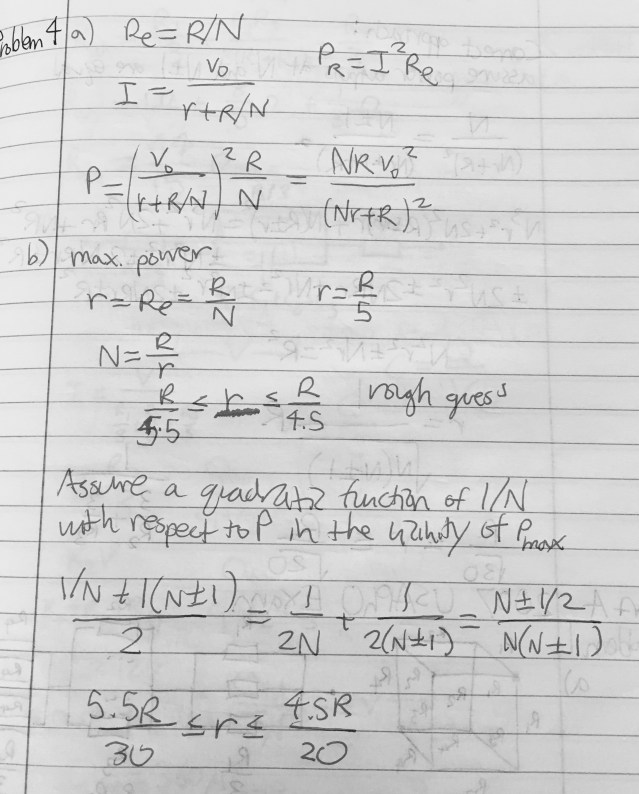 Problem 4 a) Re = R/N
P_R = I²Re
I = V₀ / (r+R/N)
P = (V₀ / (r+R/N))² R/N = NRV₀² / (Nr+R)²
b) max. power
r = Re = R/N    r = R/5
N = R/r
R/5.5 ≤ r ≤ R/4.5 rough guess
Assume a quadratic function of 1/N
with respect to P in the vicinity of Pmax
(1/N + 1(N±1)) / 2 = 1/2N + 1/2(N±1) = (N±1/2) / N(N±1)
5.5R/30 ≤ r ≤ 4.5R/20